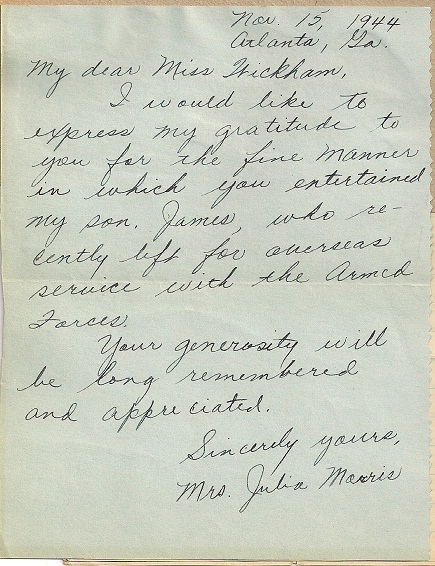 Nov. 15, 1944
Atlanta, Ga.
My dear Miss Wickham,
I would like to
express my gratitude to
you for the fine manner
in which you entertained
my son, James, who re-
cently left for overseas
service with the Armed
Forces.
Your generosity will
be long remembered
and appreciated.
Sincerely yours,
Mrs. Julia Morris